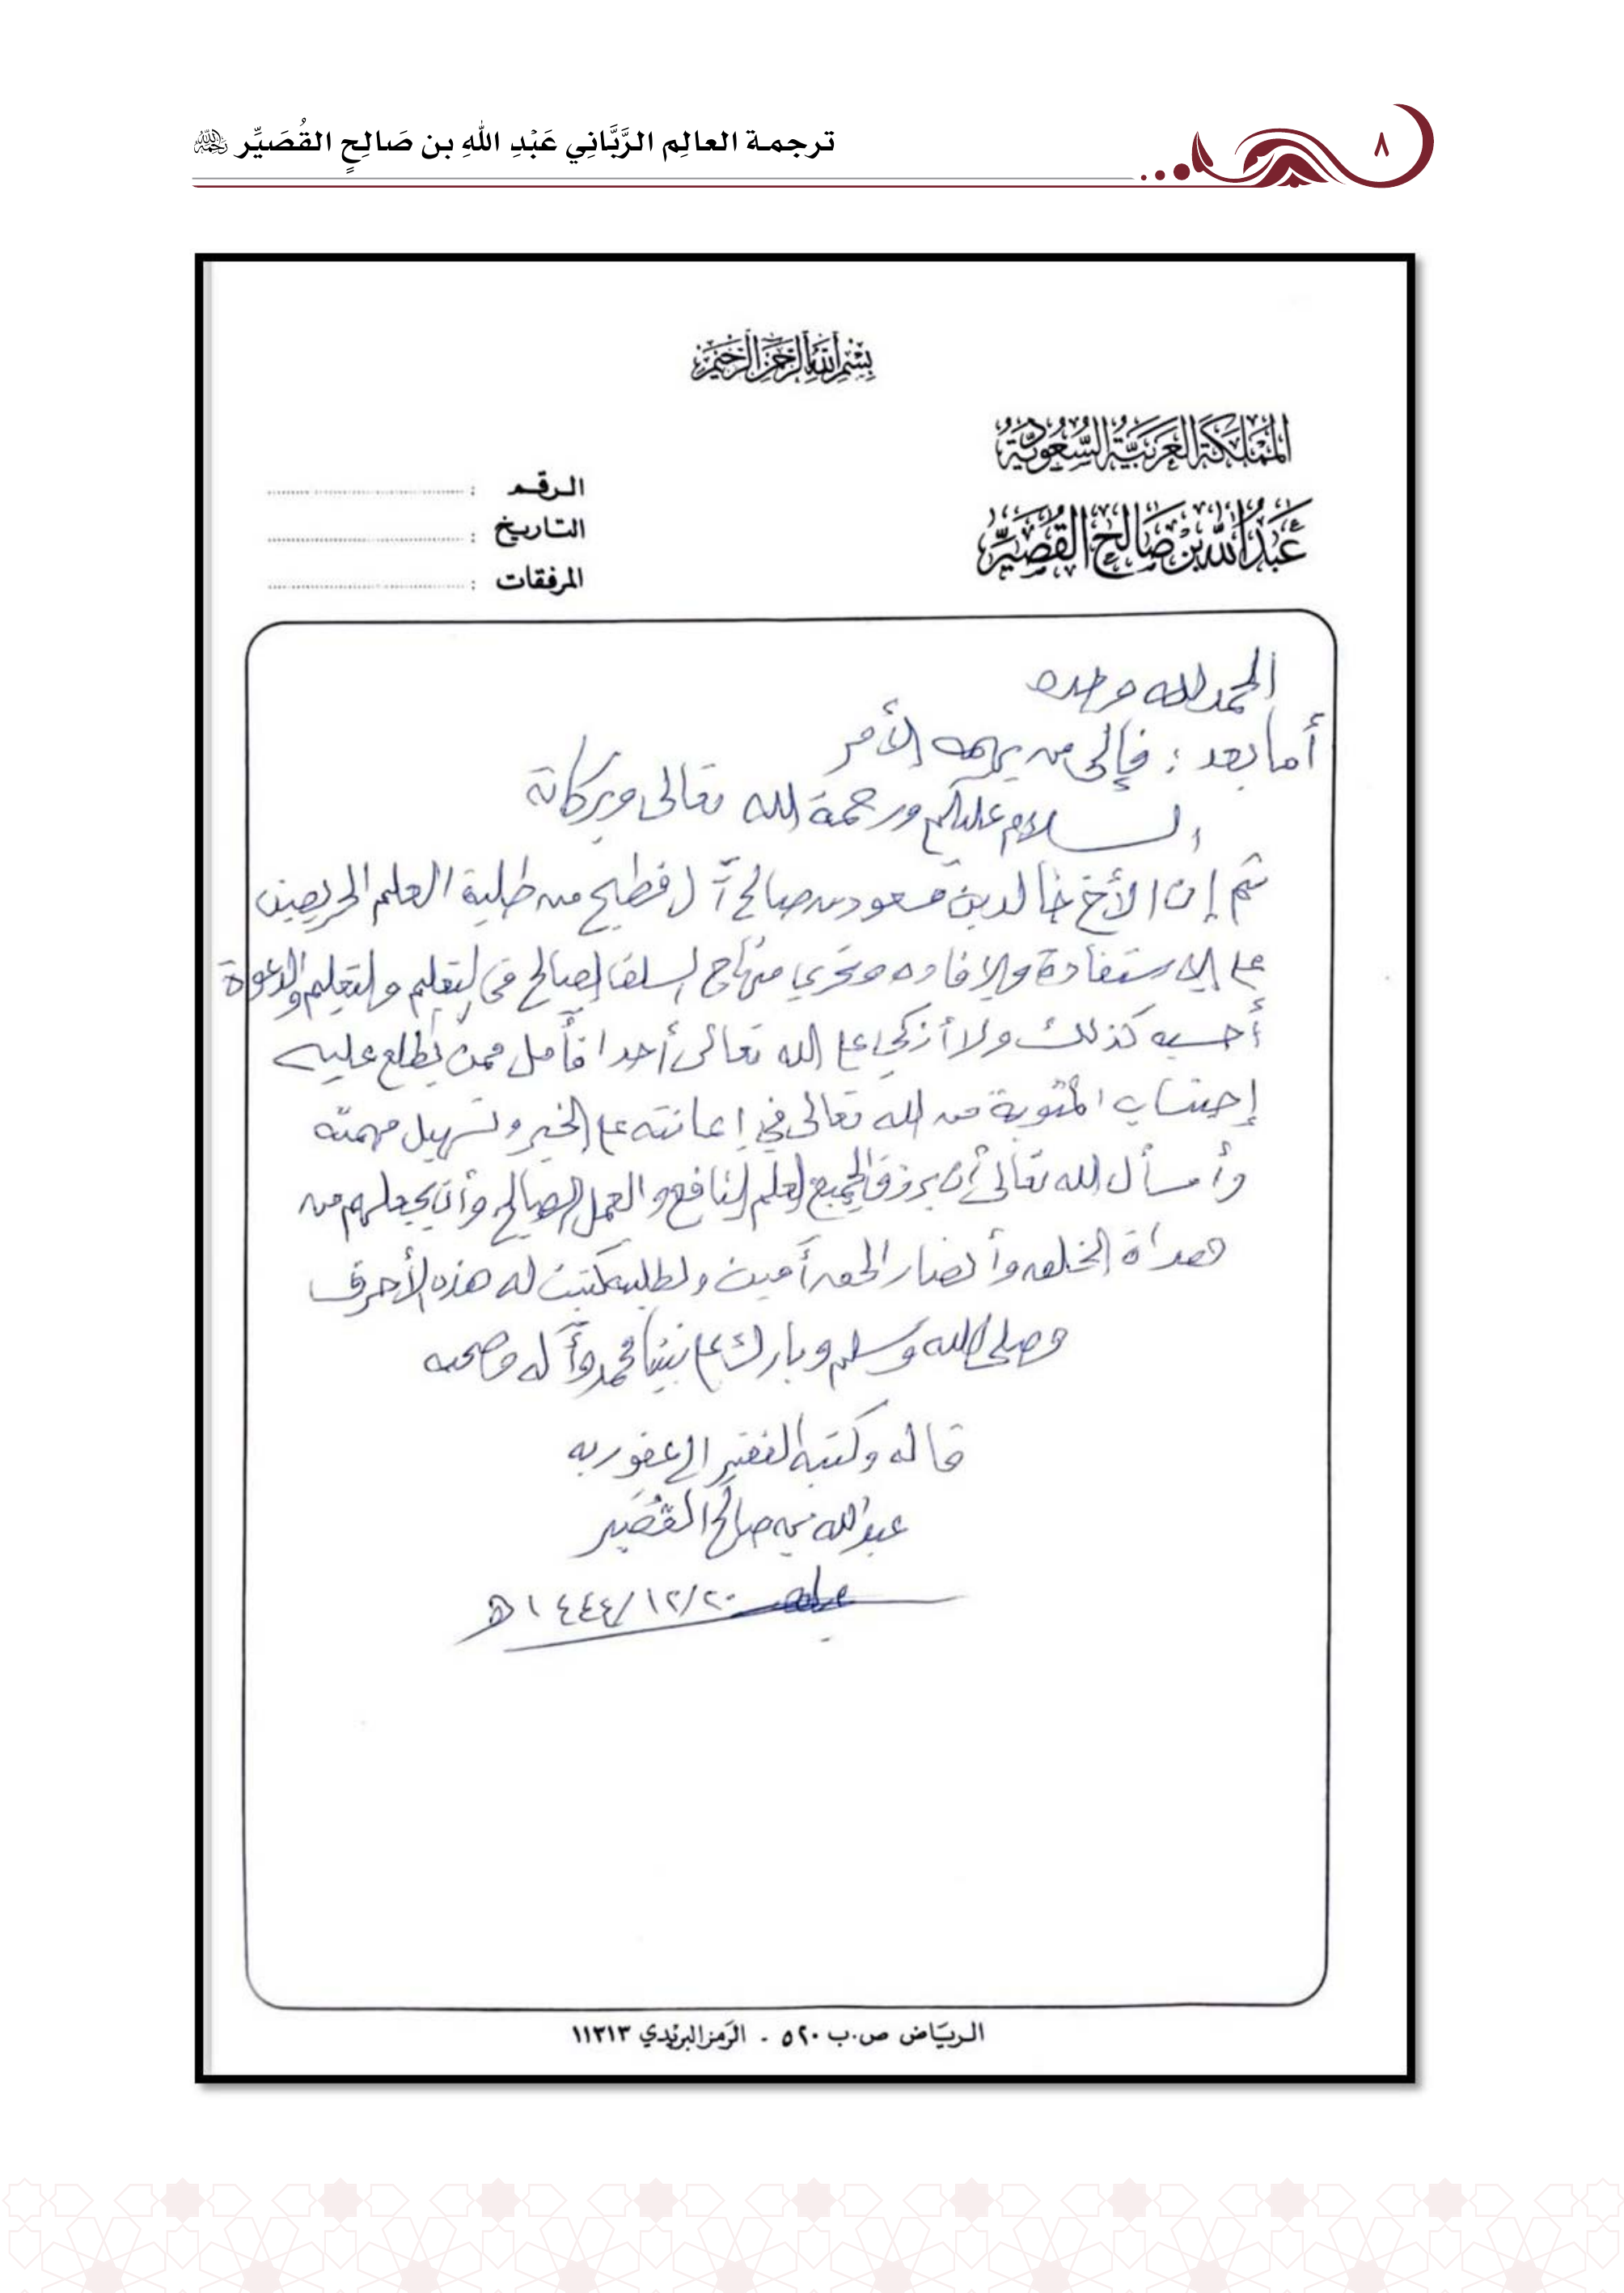 ٨
ترجمة العالِم الرَّبَّانِي عَبْدِ اللهِ بن صَالِحٍ القُصَيِّر رحمه الله
بسم الله الرحمن الرحيم
المملكة العربية السعودية
عبد الله بن صالح القصير
الرقم :
التاريخ :
المرفقات :
الحمد لله وحده
أما بعد : فإلى من يهمه الأمر
السلام عليكم ورحمة الله تعالى وبركاته
ثم إن الأخ خالد بن مسعود بن صالح آل فطيح من طلبة العلم الحريصين
على الاستفادة والإفاده وتحري منهاج السلف الصالح في التعليم والتعليم والدعوة
أحسبه كذلك ولا أزكي على الله تعالى أحدا فأمل ممن يطلع عليه
إحتساب المثوبة من الله تعالى في إعانته على الخير وتسهيل مهمته
وأسأل الله تعالى أن يرزق الجميع العلم النافع والعمل الصالح وأن يجعلهم من
هداة الخلق وأنصار الحق أمين ولطلبه كتبت له هذه الأحرف
وصلى الله وسلم وبارك على نبينا محمد وآله وصحبه
قاله وكتبه الفقير إلى عفو ربه
عبد الله بن صالح القُصَيِّر
١٤٤٤/١٢/٢٠ هـ
الرياض ص.ب ٥٢٠ - الرمز البريدي ١١٣١٣